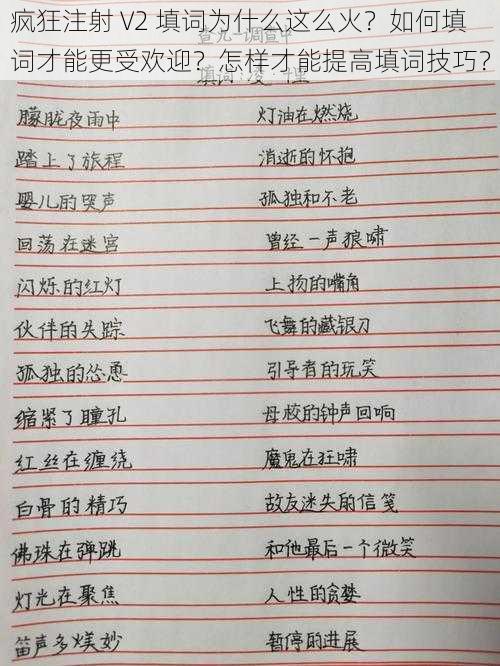 疯狂注射 V2 填词为什么这么火？如何填
词才能更受欢迎？怎样才能提高填词技巧？
朦胧夜雨中
踏上了旅程
婴儿的哭声
回荡在迷宫
闪烁的红灯
伙伴的失踪
孤独的怂恿
缩紧了瞳孔
红丝在缠绕
白骨的精巧
佛珠在弹跳
灯光在聚焦
笛声多媄妙
灯油在燃烧
消逝的怀抱
孤独和不老
曾经一声狼啸
上扬的嘴角
飞舞的藏银刀
引导者的玩笑
母校的钟声回响
魔鬼在狂啸
故友迷失的信笺
和他最后一个微笑
人性的贪婪
暂停的进展